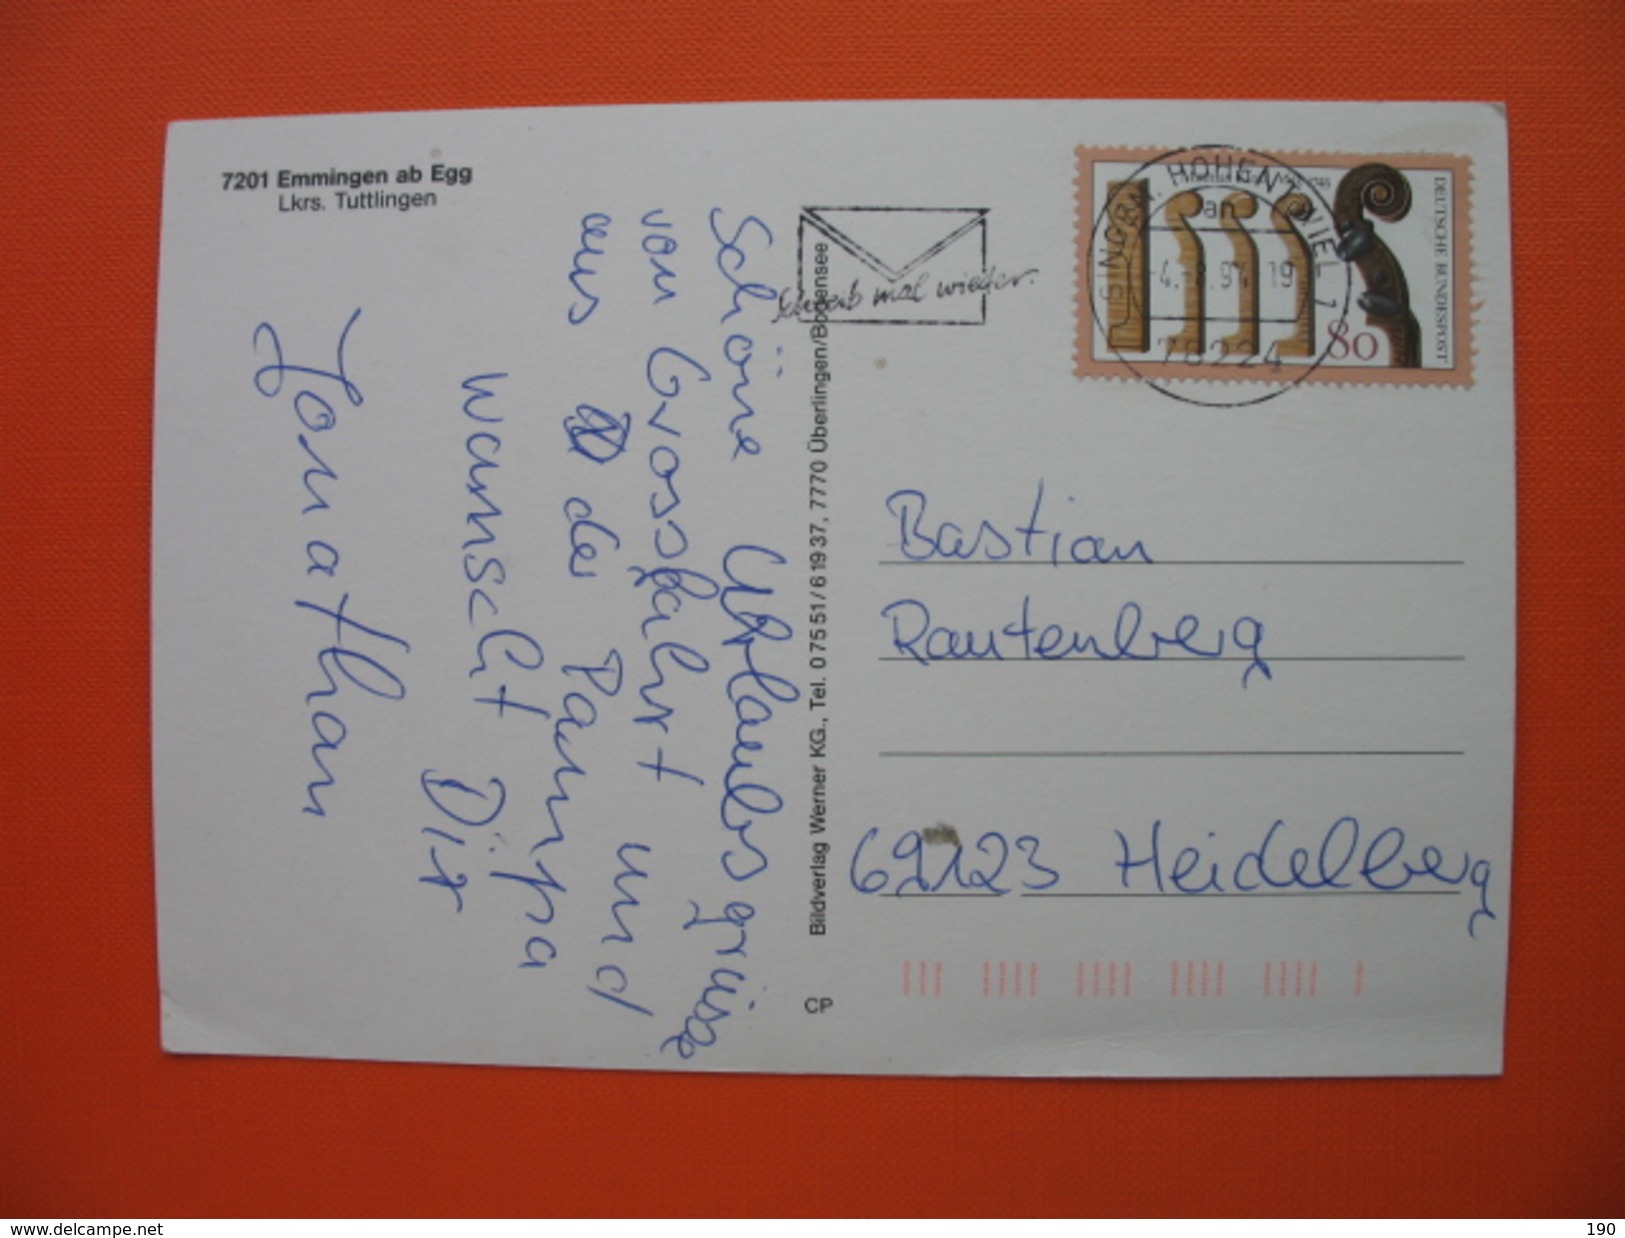 7201 Emmingen ab Egg
Lkrs. Tuttlingen
Schöne Urlaubsgrüsse
von Grossfahrt
aus der Pampa und
wünscht Dir
Jonathan
Bildverlag Werner KG., Tel. 07551/61937, 7770 Überlingen/Bodensee
CP
Schreib mal wieder.
SINGEN, HOHENTWIEL 1
an
19
78224
80
DEUTSCHE BUNDESPOST
Bastian
Rautenberg
69123 Heidelberg
www.delcampe.net
190